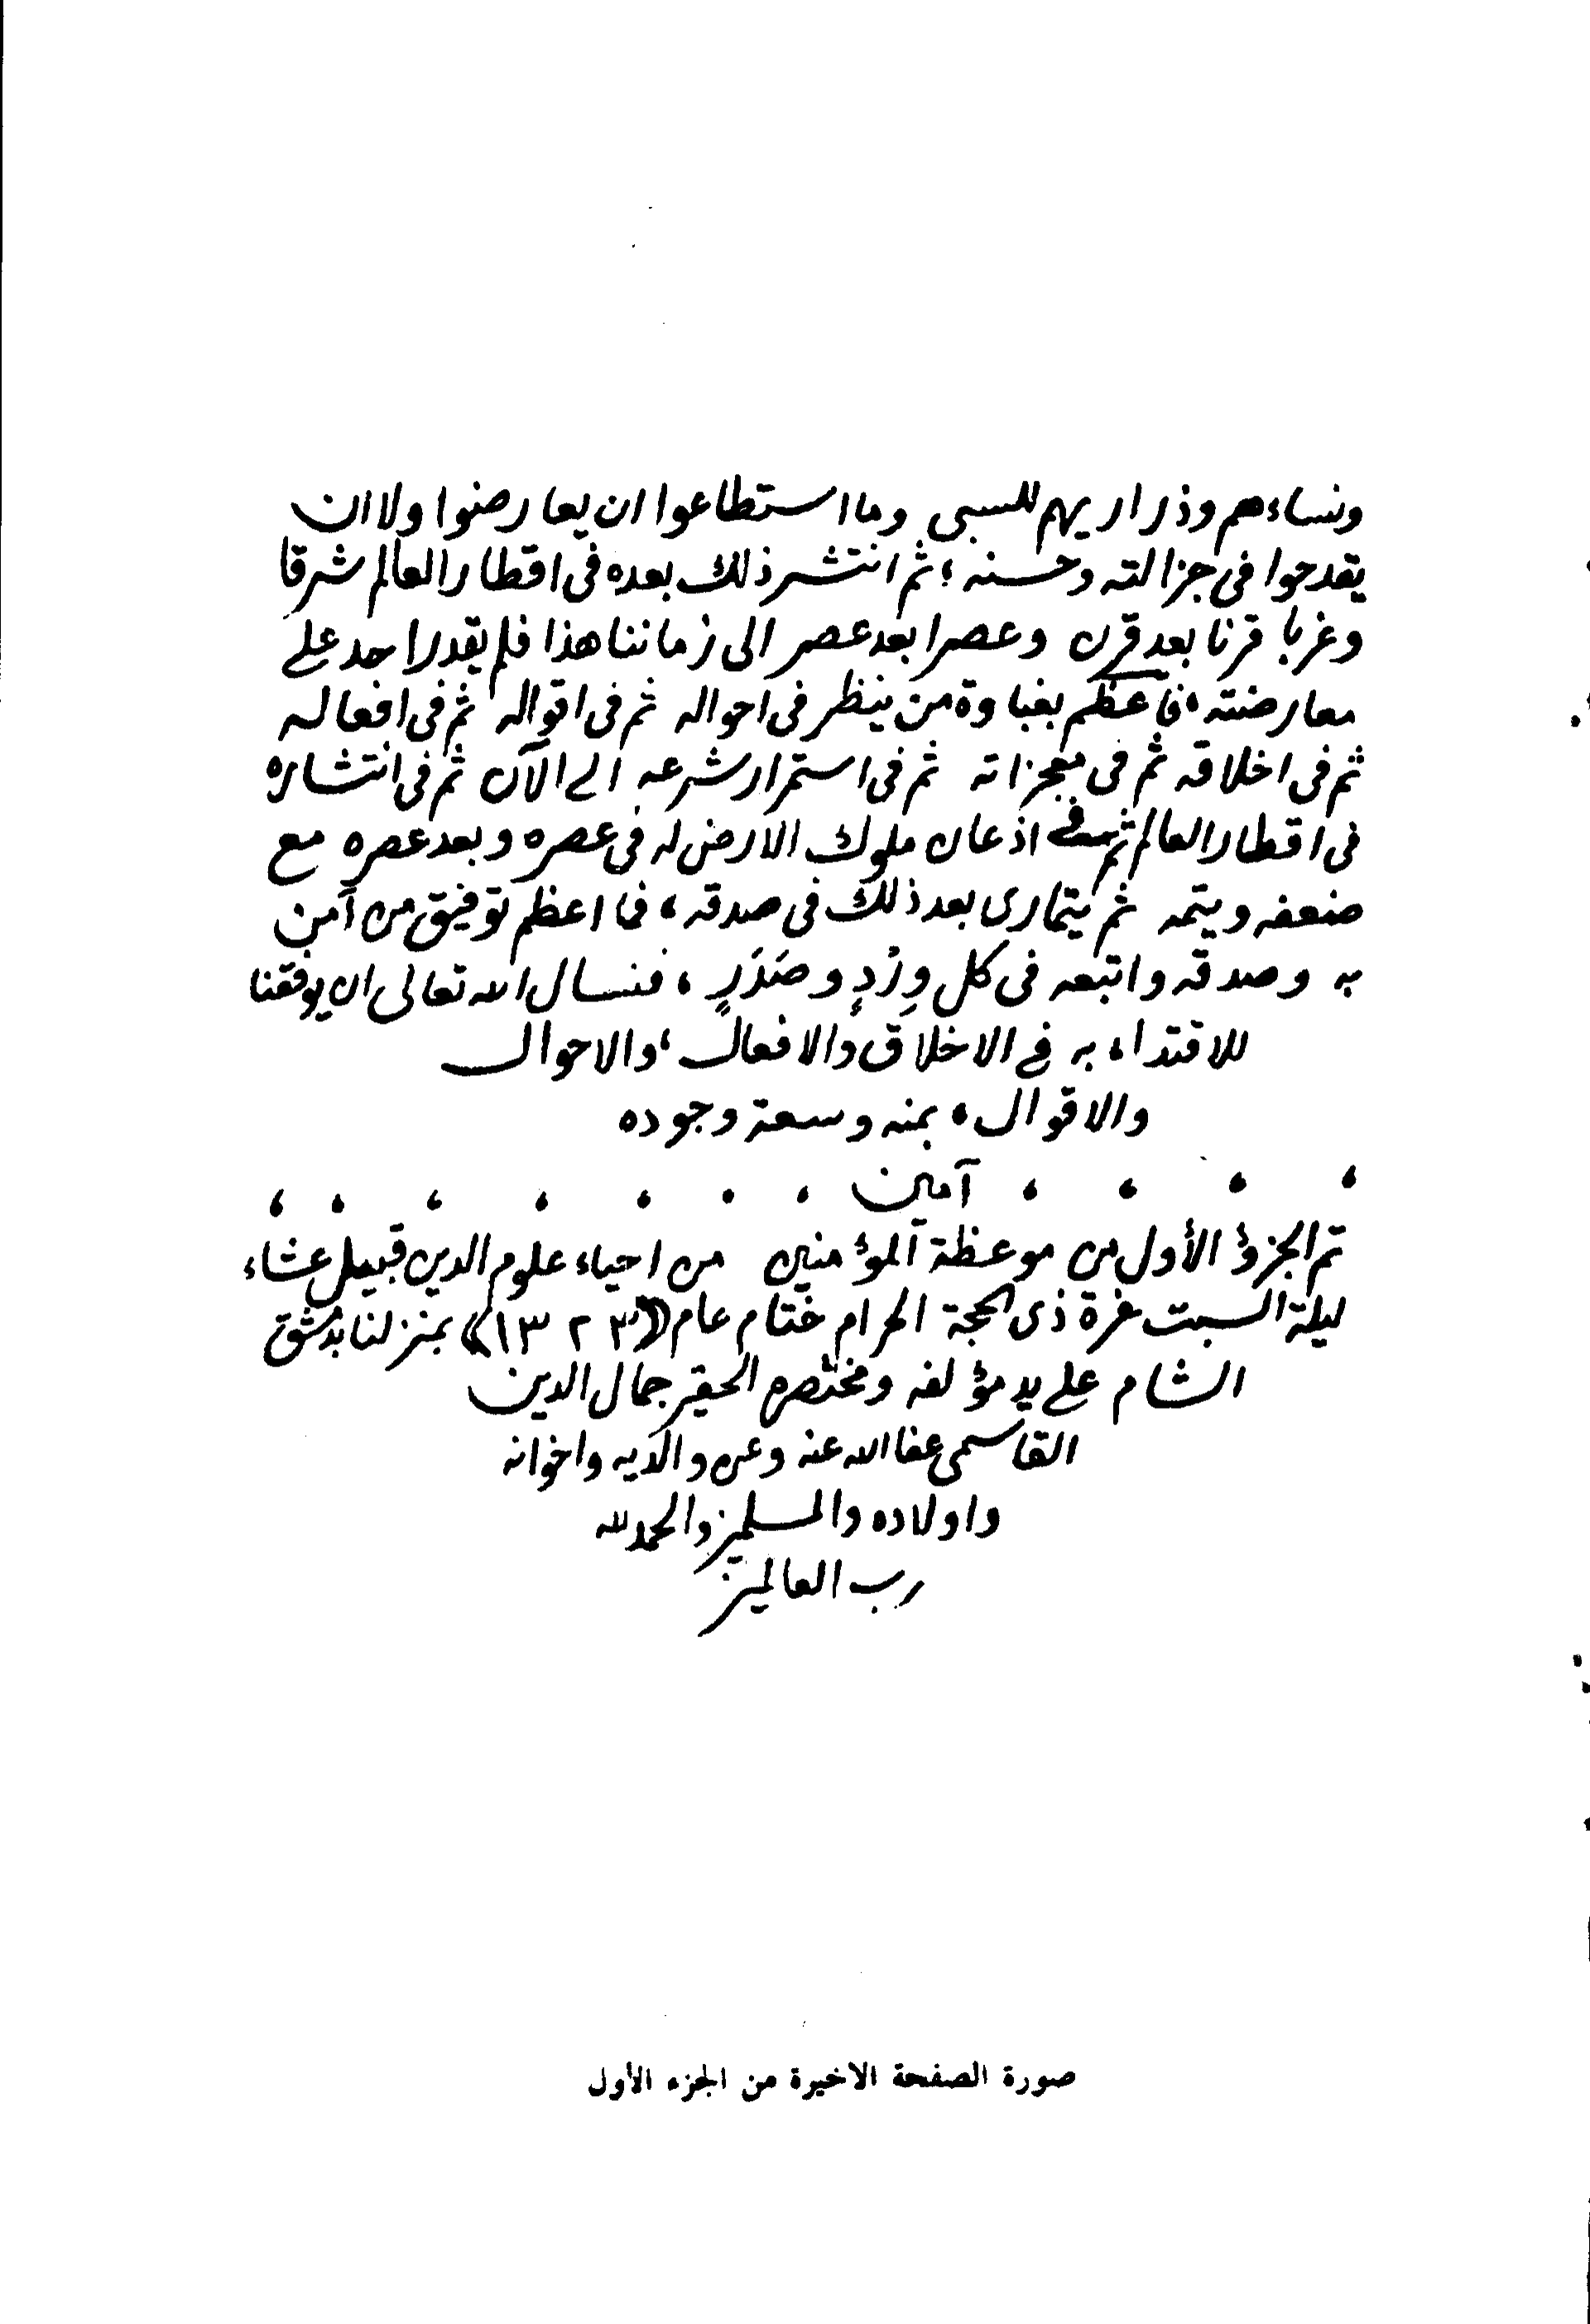 ونساءهم وذراريهم للسبى وما استطاعوا ان يعارضوا ولا ان
يقدحوا فى جزالته وحسنه ؛ ثم انتشر ذلك بعده فى اقطار العالم شرقا
وغربا قرنا بعد قرن وعصرا بعد عصر الى زماننا هذا فلم يقدر احد على
معارضته ، فأعظم بغباوة من ينظر فى احواله ثم فى اقواله ثم فى افعاله
ثم فى اخلاقه ثم فى معجزاته ثم فى استمرار شرعه الى الآن ثم فى انتشاره
فى اقطار العالم ثم فى اذعان ملوك الارض له فى عصره وبعد عصره مع
ضعفه ويتمه ثم يتمارى بعد ذلك فى صدقه ، فما اعظم توفيق من آمن
به وصدقه واتبعه فى كل وِرْدٍ وصَدَرٍ ، فنسال الله تعالى ان يوفقنا
للاقتداء به فى الاخلاق والافعال ، والاحوال
والاقوال ، بمنه وسعة وجوده
آمين
تم الجزؤ الأول من موعظة المؤمنين من احياء علوم الدين قبيل عشاء
ليلة السبت غرة ذى الحجة الحرام ختام عام ((١٣٢٣)) بمنزلنا بدمشق
الشام على يد مؤلفه ومختصره الحقير جمال الدين
القاسمى عفا الله عنه وعن والديه واخوانه
واولاده والمسلمين والحمد لله
رب العالمين
صورة الصفحة الاخيرة من الجزء الأول